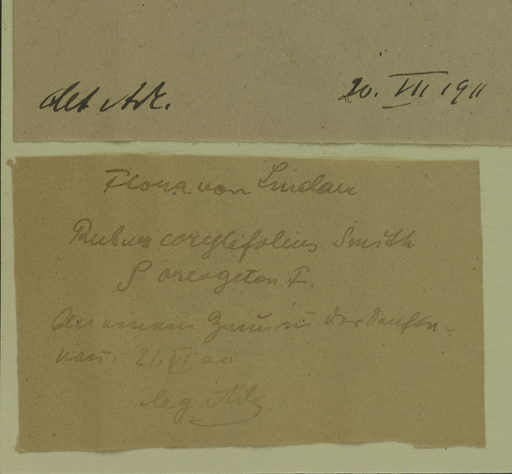 det Ade. 20. VIII 1911
Flora von Lindau
Rubus corylifolius Smith
oreogeton F.
An einem Zaun in der
21. VI 00
leg Ade